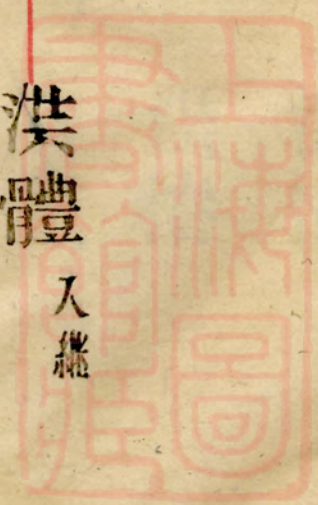 上海圖
書館藏
洪體
入繼